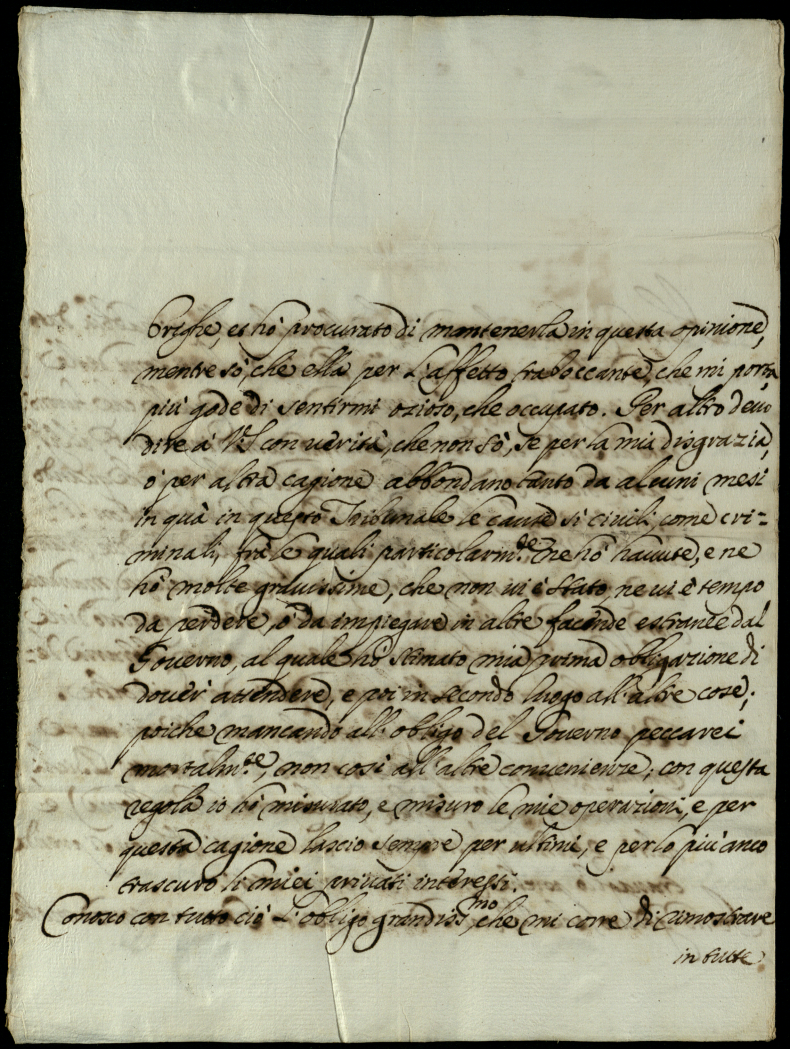 brighe, et hò procurato di mantenerla in questa opinione,
mentre sò, che ella per l'affetto traboccante, che mi porta,
più gode di sentirmi ozioso, che occupato. Per altro deuo
dire à V.S. con uerità, che non sò, se per la mia disgrazia,
ò per altra cagione abbondano tanto da alcuni mesi
in quà in questo Tribunale le cause si ciuili, come cri-
minali, frà le quali particolarm.te ne hò hauute, e ne
hò molte grauissime, che non ui è stato, ne ui è tempo
da perdere, ò da impiegare in altre facende estranee dal
Gouerno, al quale hò stimato mia prima obligazione di
douer attendere, e poi in secondo luogo all'altre cose;
poiche mancando all'obligo del Gouerno peccarei
mortalm.te, non cosi all'altre conuenienze; con questa
regola io hò misurato, e misuro le mie operazioni, e per
questa cagione lascio sempre per ultimi, e per lo più anco
trascuro li miei priuati interessi.
Conosco con tutto ciò l'obligo grandiss.mo che mi corre di dimostrare
in tutte